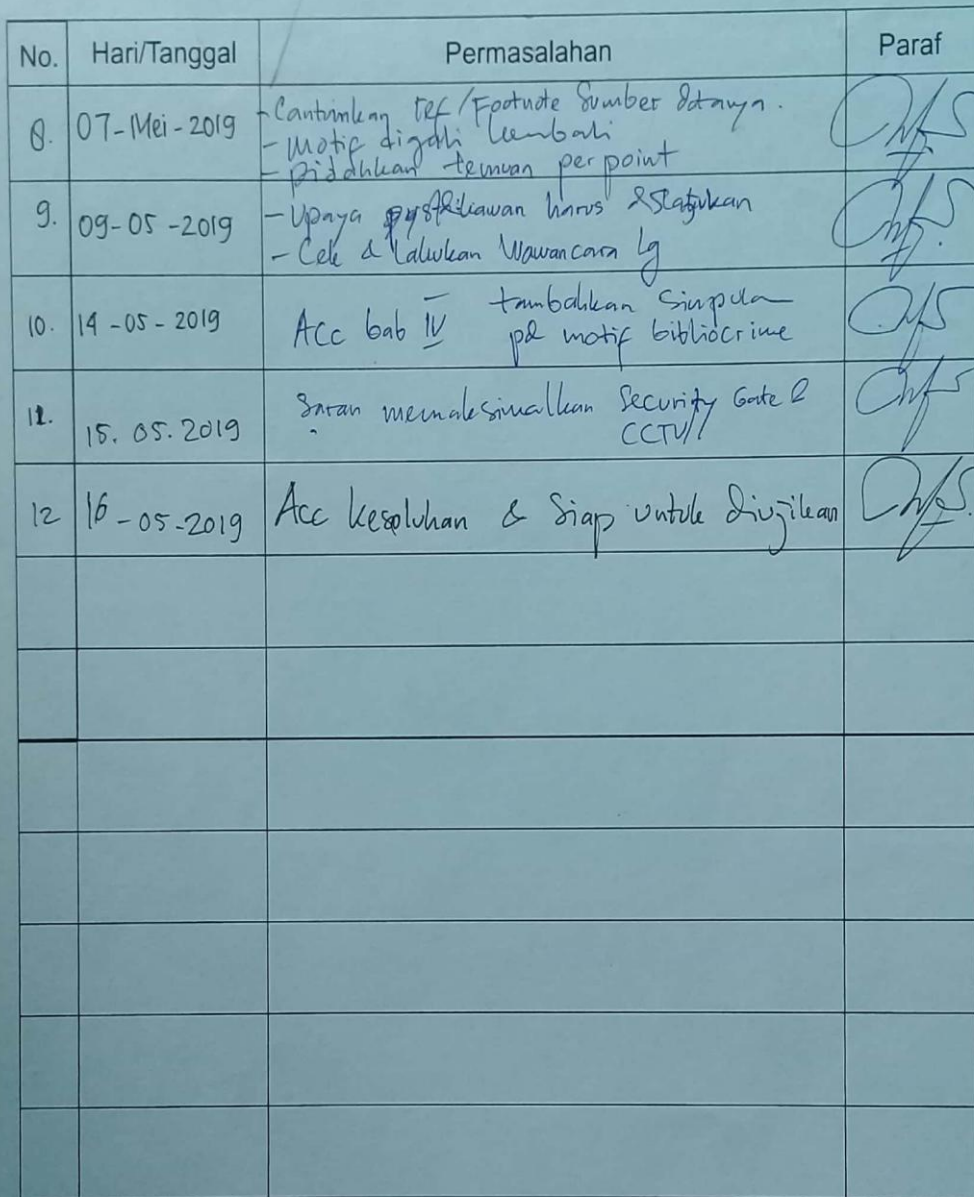 No. Hari/Tanggal Permasalahan Paraf
8. 07-Mei-2019 - Cantumkan ref/Footnote Sumber datanya.
- Motif digali kembali
- Pidahkan temuan per point
9. 09-05-2019 - Upaya harus
- Cek & lakukan Wawancara lg
10. 14-05-2019 Acc bab IV tambahkan Simpula
pd motif bibliocrime
11. 15.05.2019 Saran memaksimalkan Security Gate &
CCTV
12 16-05-2019 Acc kesoluhan & Siap untuk Diujikan